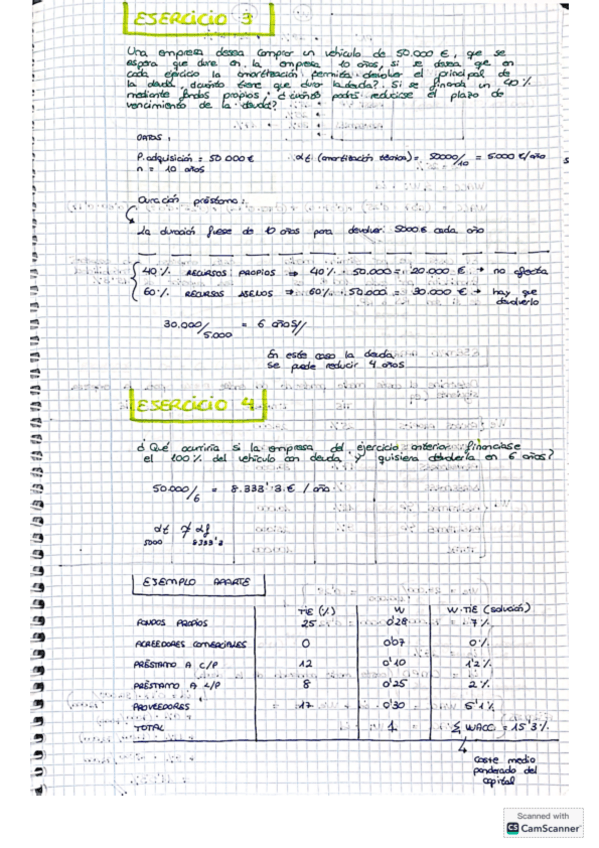 EJERCICIO 3
Una empresa desea comprar un vehículo de 50.000 €, que se
espera que dure en la empresa 10 años, si se desea que en
cada ejercicio la amortización permita devolver el principal de
la deuda, ¿cuánto tiene que durar la deuda? Si se financia un 40%
mediante fondos propios, ¿cuánto podrá reducirse el plazo de
vencimiento de la deuda?
DATOS:
P. adquisición = 50.000 € dt (amortización técnica) = 50000/10 = 5000 €/año
n = 10 años
Duración préstamo:
La duración fuese de 10 años para devolver 5000 € cada año
40% RECURSOS PROPIOS ⇒ 40% · 50.000 = 20.000 € → no afecta
60% RECURSOS AJENOS ⇒ 60% · 50.000 = 30.000 € → hay que
devolverlo
30.000/5.000 = 6 años//
En este caso la deuda
se puede reducir 4 años
EJERCICIO 4
¿Qué ocurriría si la empresa del ejercicio anterior financiase
el 100% del vehículo con deuda y quisiera devolverla en 6 años?
50.000/6 = 8.333'3 € / año
dt ≠ df
5000 8333'3
EJEMPLO APARTE
TIE (%) W W·TIE (solución)
FONDOS PROPIOS 25 0'28 7%
ACREEDORES COMERCIALES 0 0'07 0%
PRÉSTAMO A C/P 12 0'10 1'2%
PRÉSTAMO A L/P 8 0'25 2%
PROVEEDORES 17 0'30 5'1%
TOTAL 1 Σ WACC = 15'3%
coste medio
ponderado del
capital
Scanned with
CS CamScanner